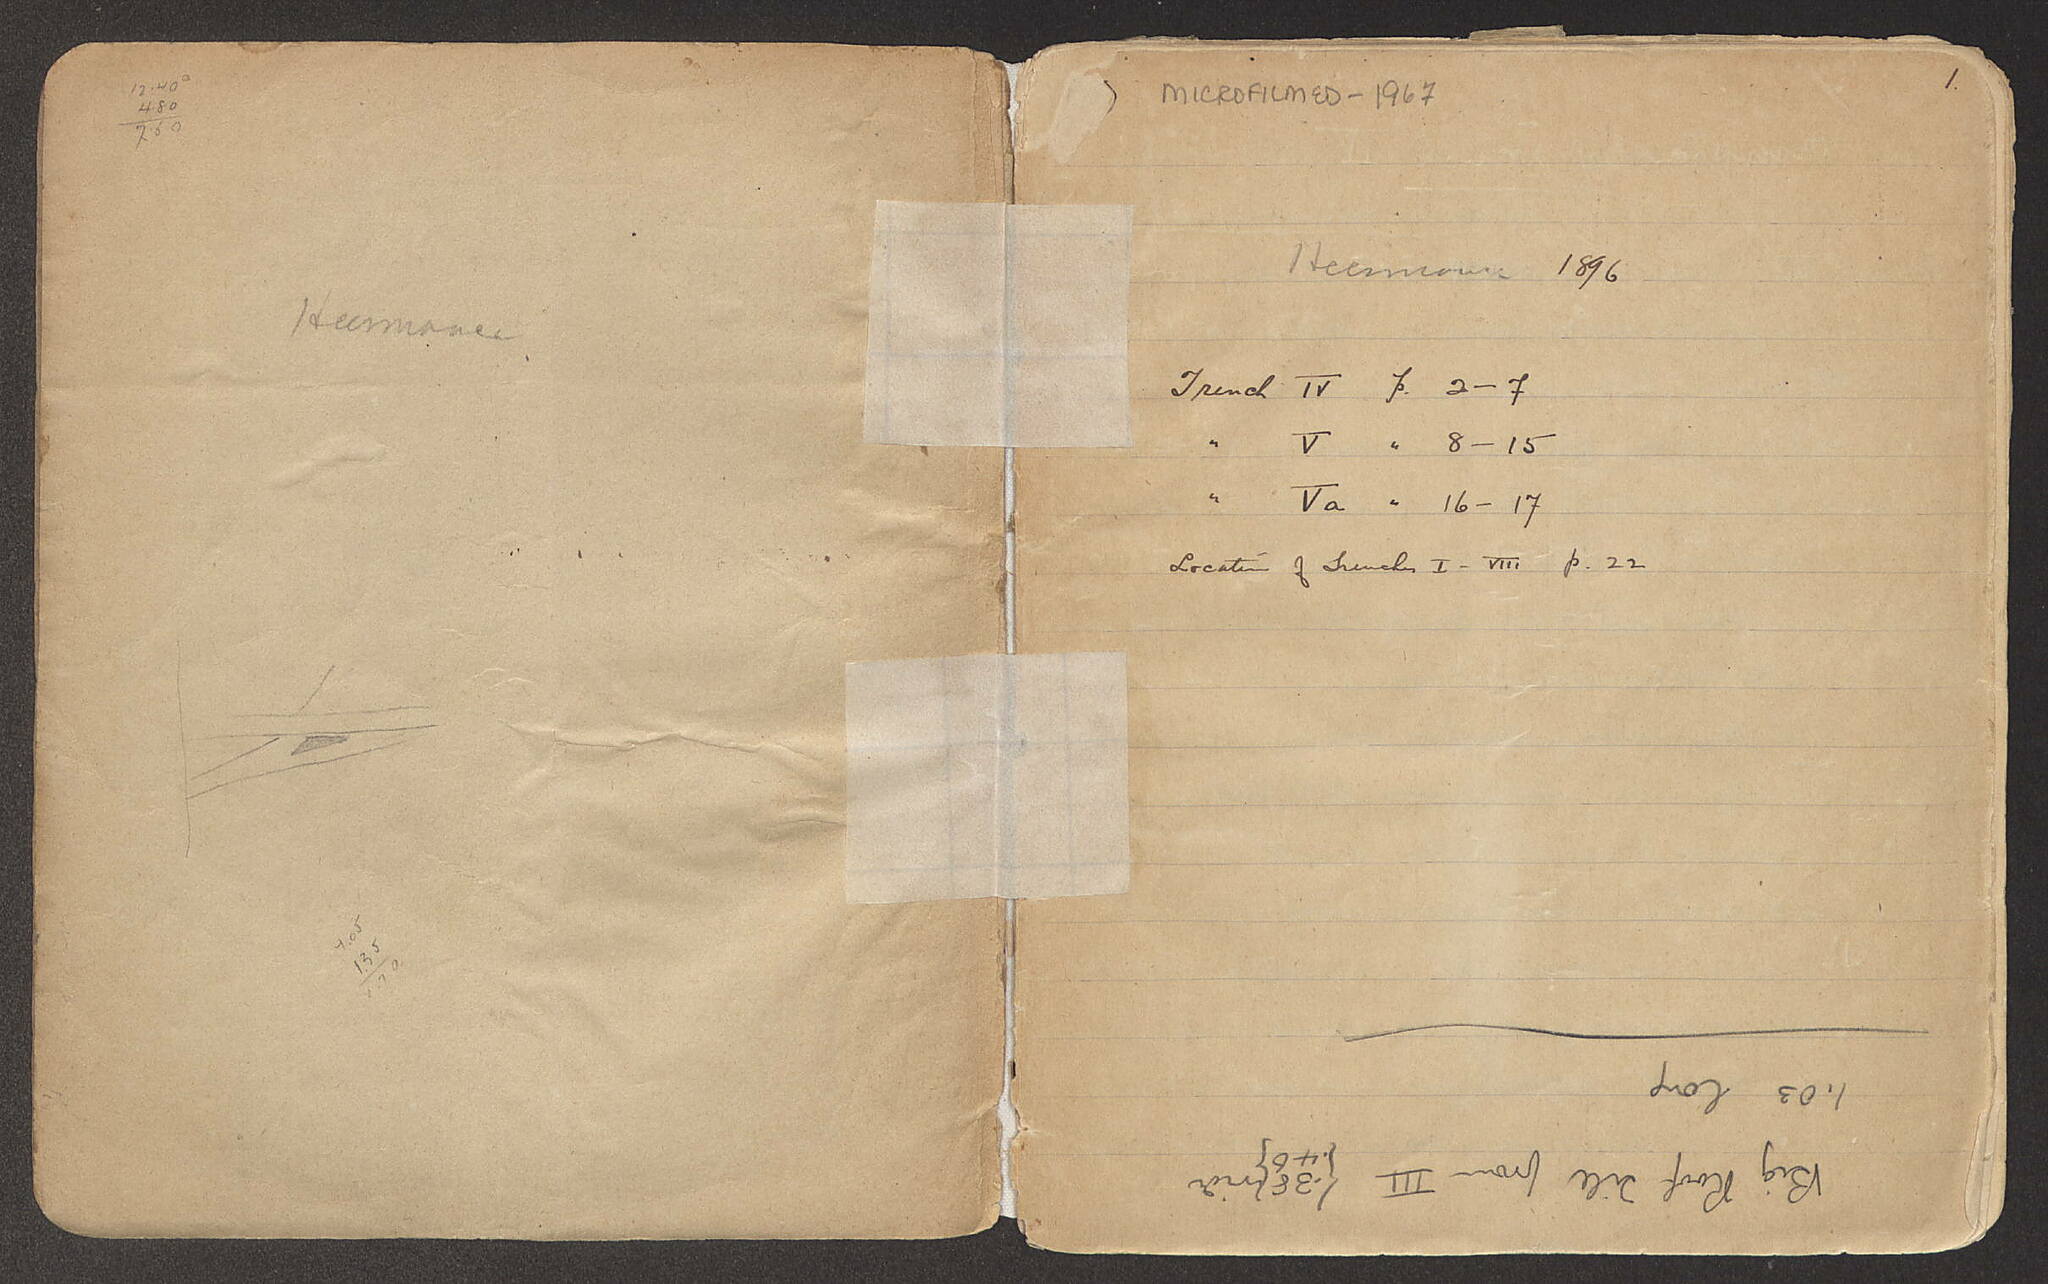 12.40
4.80
7.60
Heermance
4.05
1.35
MICROFILMED - 1967
1.
Heermance 1896
Trench IV p. 2 - 7
" V " 8 - 15
" Va " 16 - 17
Location of Trenches I - VIII p. 22
Big Roof tile from III {.38 / .40} wide
1.03 long